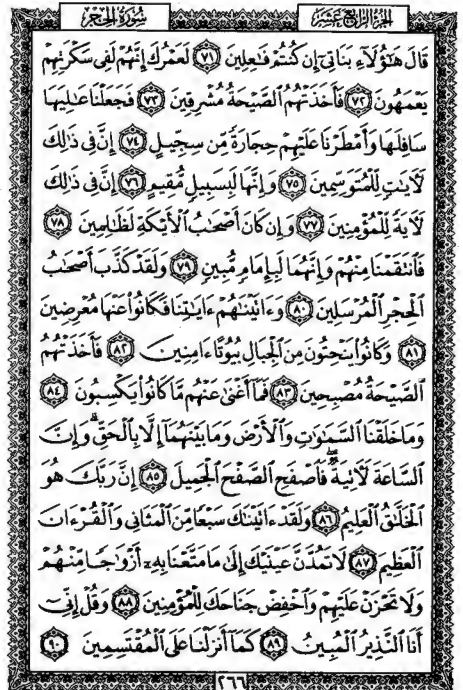 الجزء الرابع عشر
سورة الحجر
قَالَ هَٰٓؤُلَآءِ بَنَاتِيٓ إِن كُنتُمْ فَٰعِلِينَ ٧١ لَعَمْرُكَ إِنَّهُمْ لَفِي سَكْرَتِهِمْ
يَعْمَهُونَ ٧٢ فَأَخَذَتْهُمُ ٱلصَّيْحَةُ مُشْرِقِينَ ٧٣ فَجَعَلْنَا عَٰلِيَهَا
سَافِلَهَا وَأَمْطَرْنَا عَلَيْهِمْ حِجَارَةً مِّن سِجِّيلٍ ٧٤ إِنَّ فِي ذَٰلِكَ
لَأٓيَٰتٍ لِّلْمُتَوَسِّمِينَ ٧٥ وَإِنَّهَا لَبِسَبِيلٍ مُّقِيمٍ ٧٦ إِنَّ فِي ذَٰلِكَ
لَأٓيَةً لِّلْمُؤْمِنِينَ ٧٧ وَإِن كَانَ أَصْحَٰبُ ٱلْأَيْكَةِ لَظَٰلِمِينَ ٧٨
فَٱنتَقَمْنَا مِنْهُمْ وَإِنَّهُمَا لَبِإِمَامٍ مُّبِينٍ ٧٩ وَلَقَدْ كَذَّبَ أَصْحَٰبُ
ٱلْحِجْرِ ٱلْمُرْسَلِينَ ٨٠ وَءَاتَيْنَٰهُمْ ءَايَٰتِنَا فَكَانُوا۟ عَنْهَا مُعْرِضِينَ
٨١ وَكَانُوا۟ يَنْحِتُونَ مِنَ ٱلْجِبَالِ بُيُوتًا ءَامِنِينَ ٨٢ فَأَخَذَتْهُمُ
ٱلصَّيْحَةُ مُصْبِحِينَ ٨٣ فَمَآ أَغْنَىٰ عَنْهُم مَّا كَانُوا۟ يَكْسِبُونَ ٨٤
وَمَا خَلَقْنَا ٱلسَّمَٰوَٰتِ وَٱلْأَرْضَ وَمَا بَيْنَهُمَآ إِلَّا بِٱلْحَقِّ ۗ وَإِنَّ
ٱلسَّاعَةَ لَأٓتِيَةٌ ۖ فَٱصْفَحِ ٱلصَّفْحَ ٱلْجَمِيلَ ٨٥ إِنَّ رَبَّكَ هُوَ
ٱلْخَلَّٰقُ ٱلْعَلِيمُ ٨٦ وَلَقَدْ ءَاتَيْنَٰكَ سَبْعًا مِّنَ ٱلْمَثَانِي وَٱلْقُرْءَانَ
ٱلْعَظِيمَ ٨٧ لَا تَمُدَّنَّ عَيْنَيْكَ إِلَىٰ مَا مَتَّعْنَا بِهِۦٓ أَزْوَٰجًا مِّنْهُمْ
وَلَا تَحْزَنْ عَلَيْهِمْ وَٱخْفِضْ جَنَاحَكَ لِلْمُؤْمِنِينَ ٨٨ وَقُلْ إِنِّيٓ
أَنَا ٱلنَّذِيرُ ٱلْمُبِينُ ٨٩ كَمَآ أَنزَلْنَا عَلَى ٱلْمُقْتَسِمِينَ ٩٠
٢٦٦